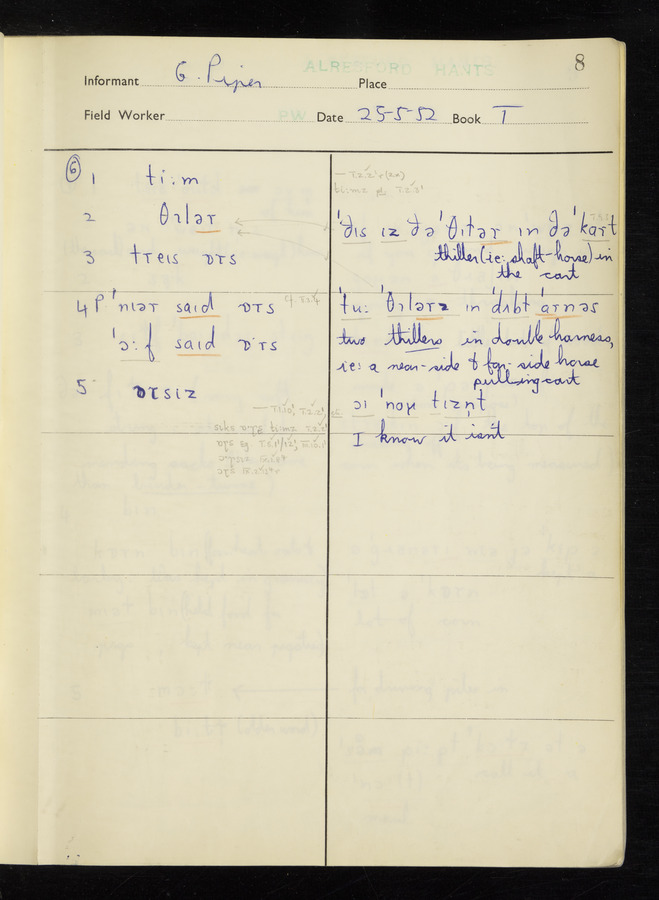 8
ALRESFORD HANTS
Informant G. Piper Place
Field Worker PW Date 25-5-52 Book I
6 1 tiːm
2 θɪlər
3 treɪs ɒrs
4 P ˈnɪər saɪd ɒrs
ˈɔːf saɪd ɒrs
5 ɒrsɪz
ˈðɪs ɪz ðəˈθɪlər ɪn ðəˈkart
thiller (ie: shaft-horse) in
the cart
ˈtuː ˈθɪlərz ɪn ˈdɪbt ˈarnəs
two thillers in double harness,
ie: a near-side & far-side horse
pulling cart
ɔɪ ˈnoʊ tɪzn̩t
I know it isn't